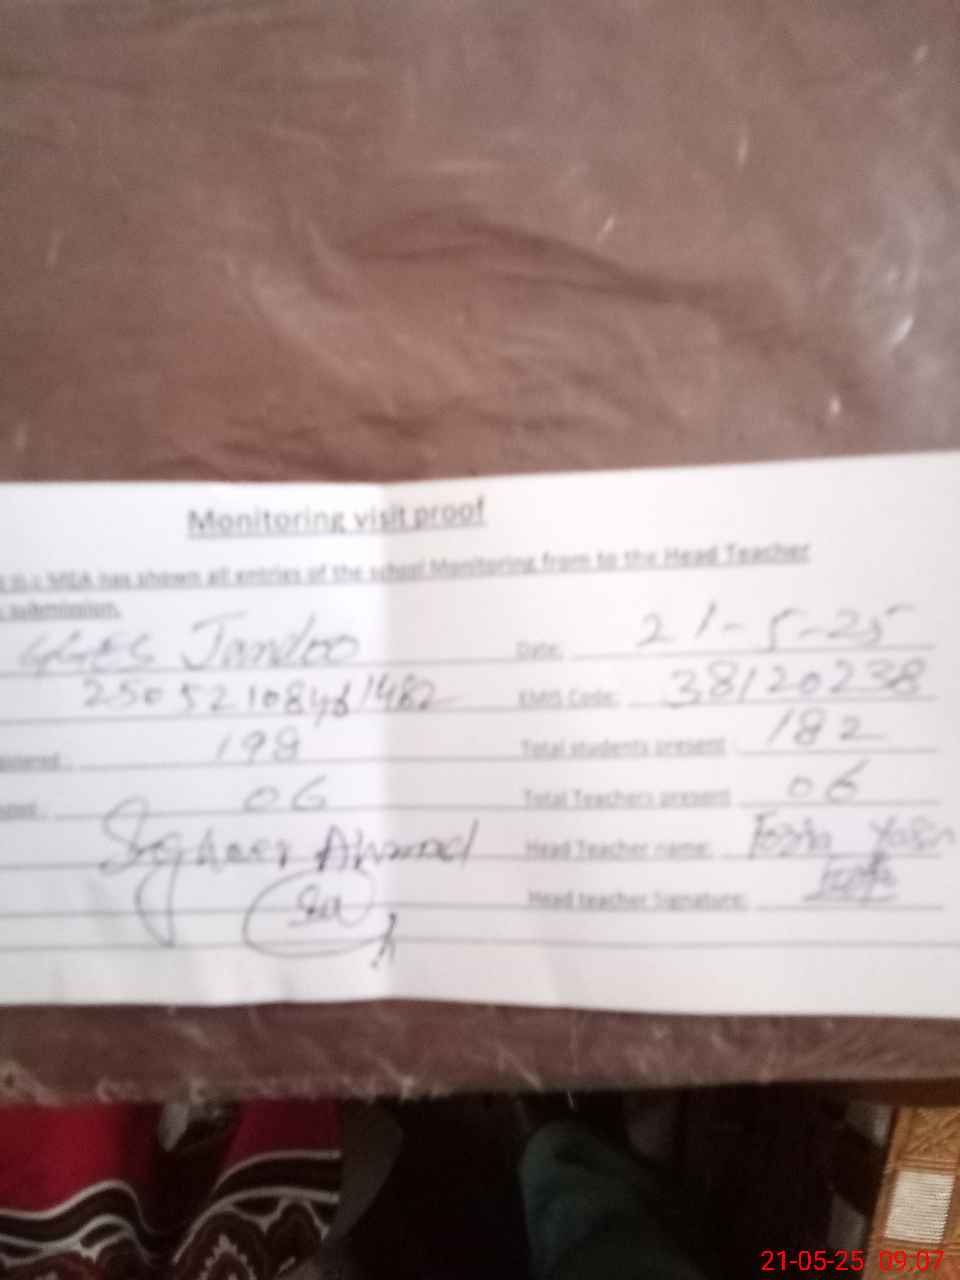 Monitoring visit proof
MEA has shown all entries of the school Monitoring from to the Head Teacher
submission.
GGES Jandoo Date: 21-5-25
EMIS Code: 38120238
198 Total students present 182
06 Total Teachers present 06
Sagheer Ahmad Head Teacher name: Fozia Yasin
Head teacher Signature:
21-05-25 09:07